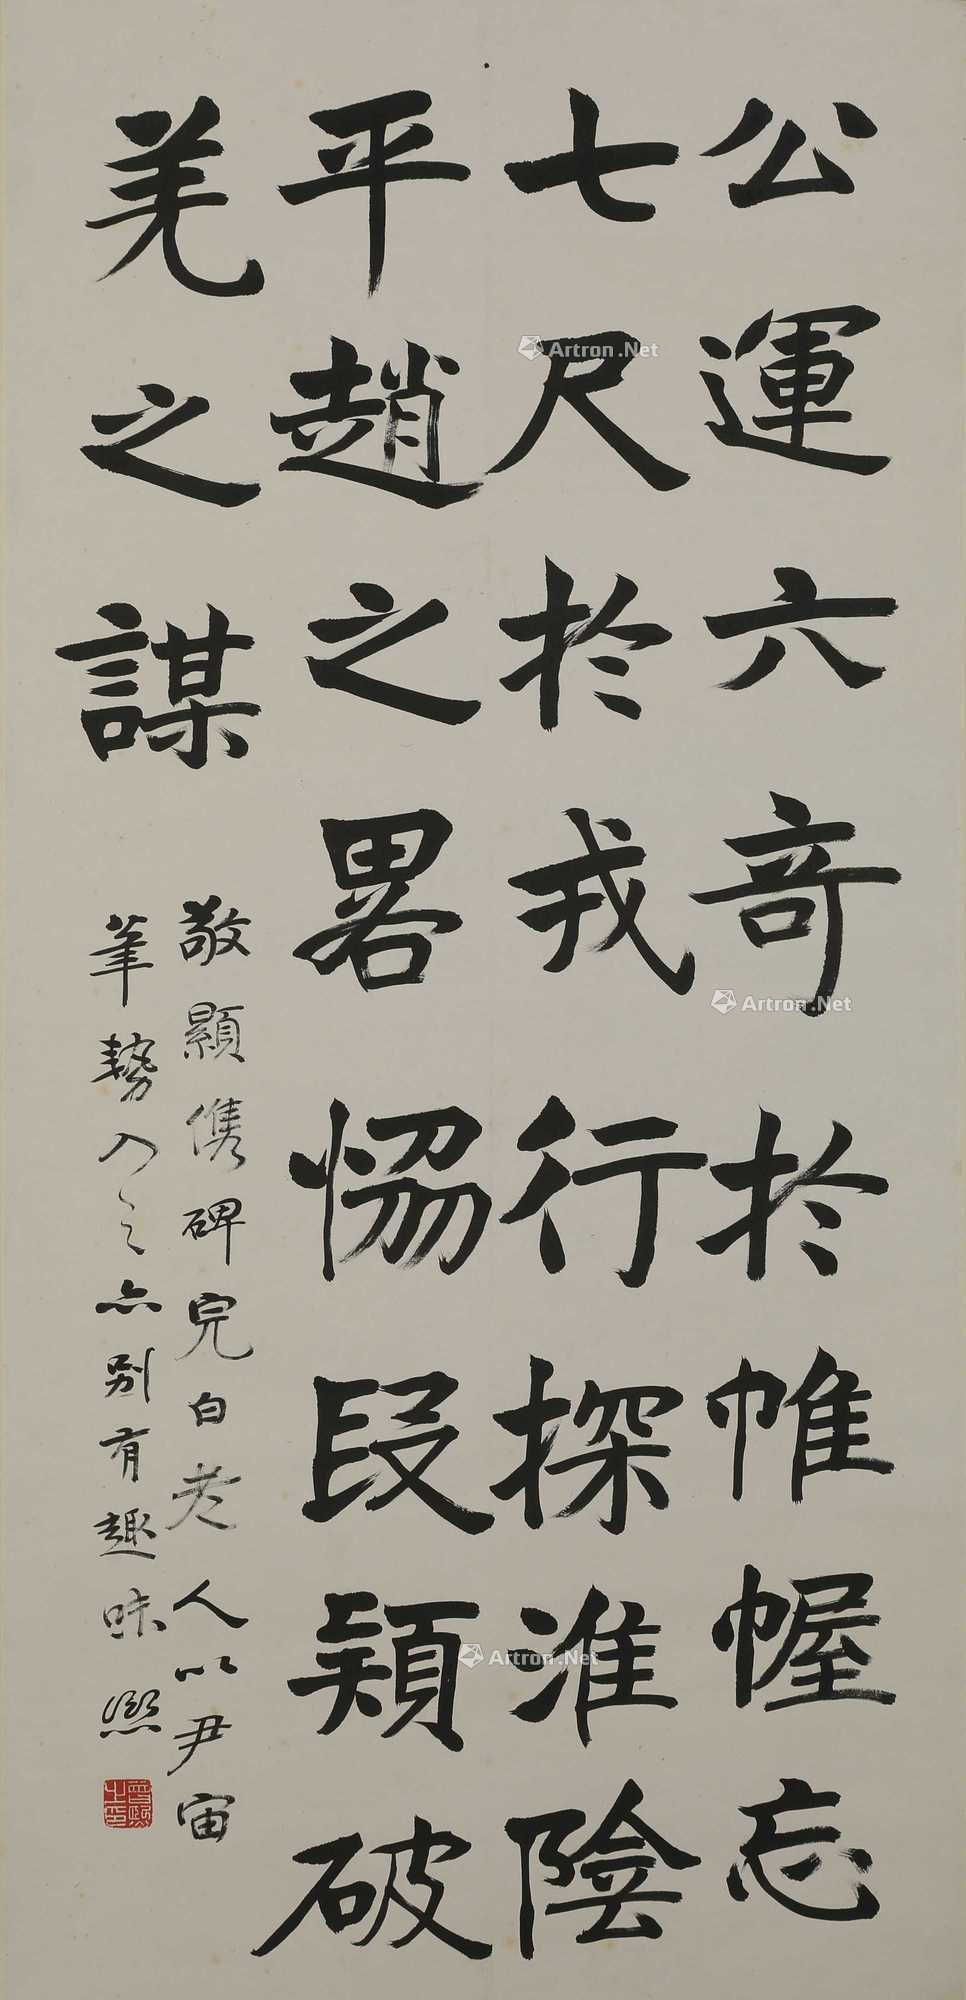 公運六竒於帷幄忘
七尺於戎行探淮陰
平趙之畧恊段熲破
羌之謀
敬顯儁碑完白老人以尹宙
筆勢入之亦别有趣味熙
曾熙之印
Artron.Net
Artron.Net
Artron.Net